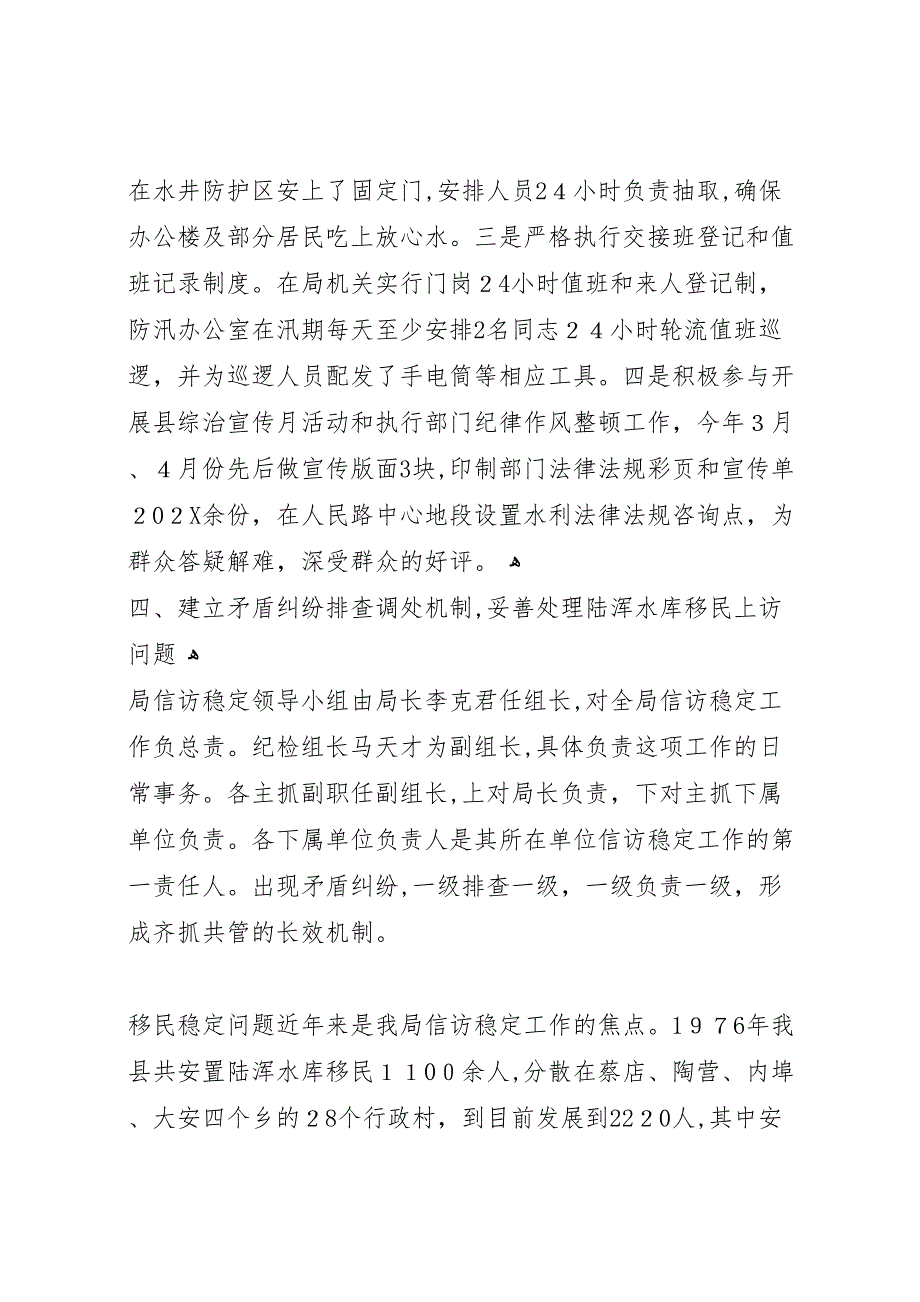 在水井防护区安上了固定门,安排人员24小时负责抽取,确保
办公楼及部分居民吃上放心水。三是严格执行交接班登记和值
班记录制度。在局机关实行门岗24小时值班和来人登记制，
防汛办公室在汛期每天至少安排2名同志24小时轮流值班巡
逻，并为巡逻人员配发了手电筒等相应工具。四是积极参与开
展县综治宣传月活动和执行部门纪律作风整顿工作，今年3月
、4月份先后做宣传版面3块,印制部门法律法规彩页和宣传单
202X余份，在人民路中心地段设置水利法律法规咨询点，为
群众答疑解难，深受群众的好评。 ﻫ
四、建立矛盾纠纷排查调处机制,妥善处理陆浑水库移民上访
问题 ﻫ
局信访稳定领导小组由局长李克君任组长,对全局信访稳定工
作负总责。纪检组长马天才为副组长,具体负责这项工作的日
常事务。各主抓副职任副组长,上对局长负责，下对主抓下属
单位负责。各下属单位负责人是其所在单位信访稳定工作的第
一责任人。出现矛盾纠纷,一级排查一级，一级负责一级，形
成齐抓共管的长效机制。
移民稳定问题近年来是我局信访稳定工作的焦点。1976年我
县共安置陆浑水库移民1100余人,分散在蔡店、陶营、内埠
、大安四个乡的28个行政村，到目前发展到2220人,其中安